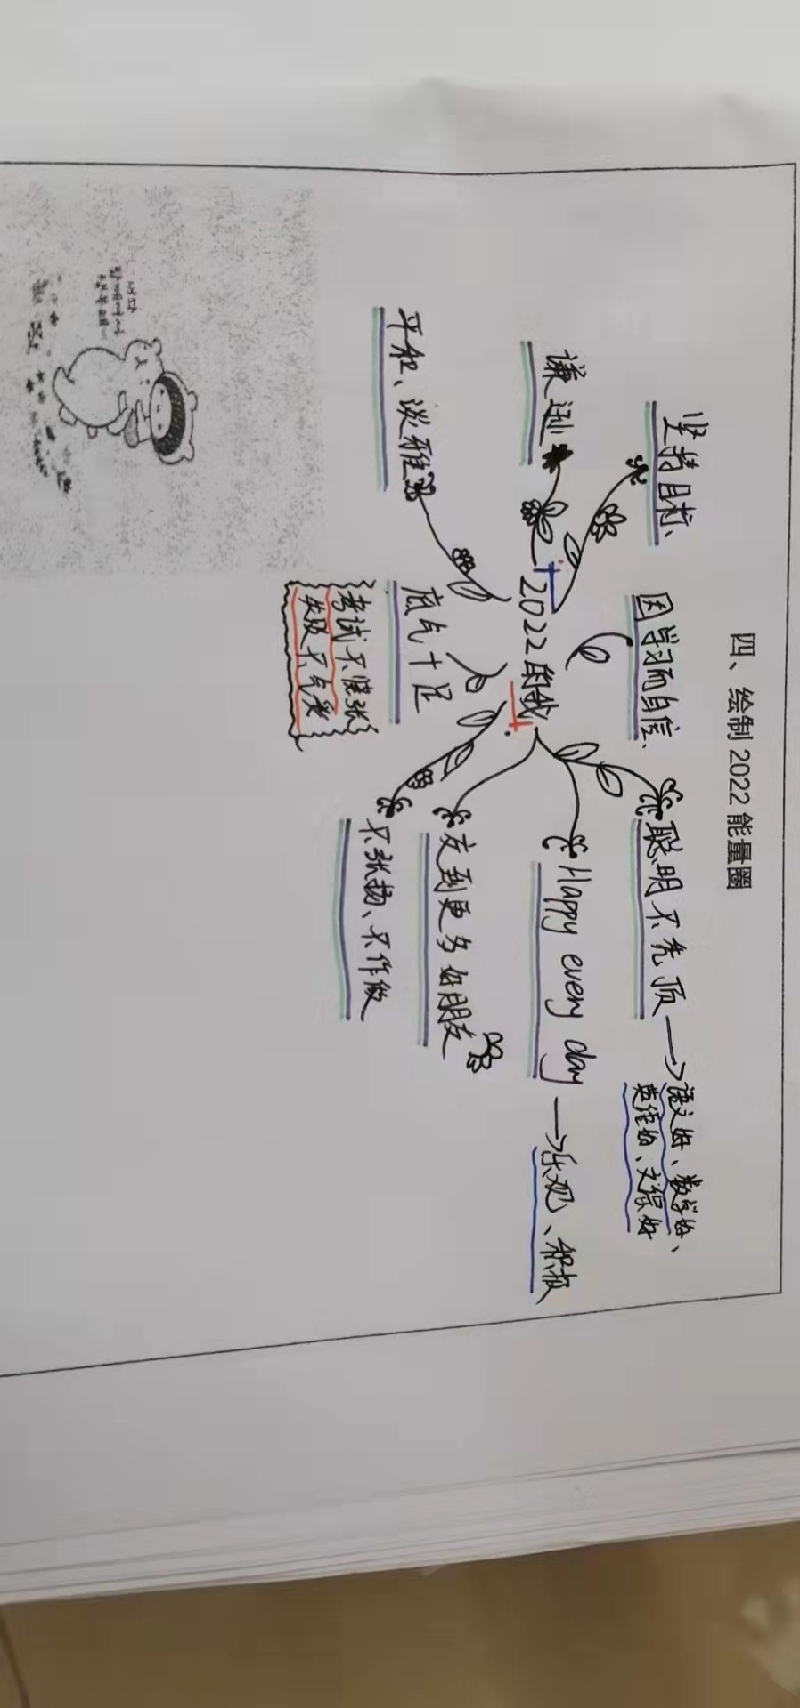 四、绘制2022能量圈
坚持目标、
因学习而自信、
聪明不秃顶
语文好、数学好、
英语好、文综好
谦逊
2022的我
Happy every day
乐观、积极
平和、淡雅
底气十足
交到更多好朋友
考试不紧张
失败不气馁
不张扬、不作做